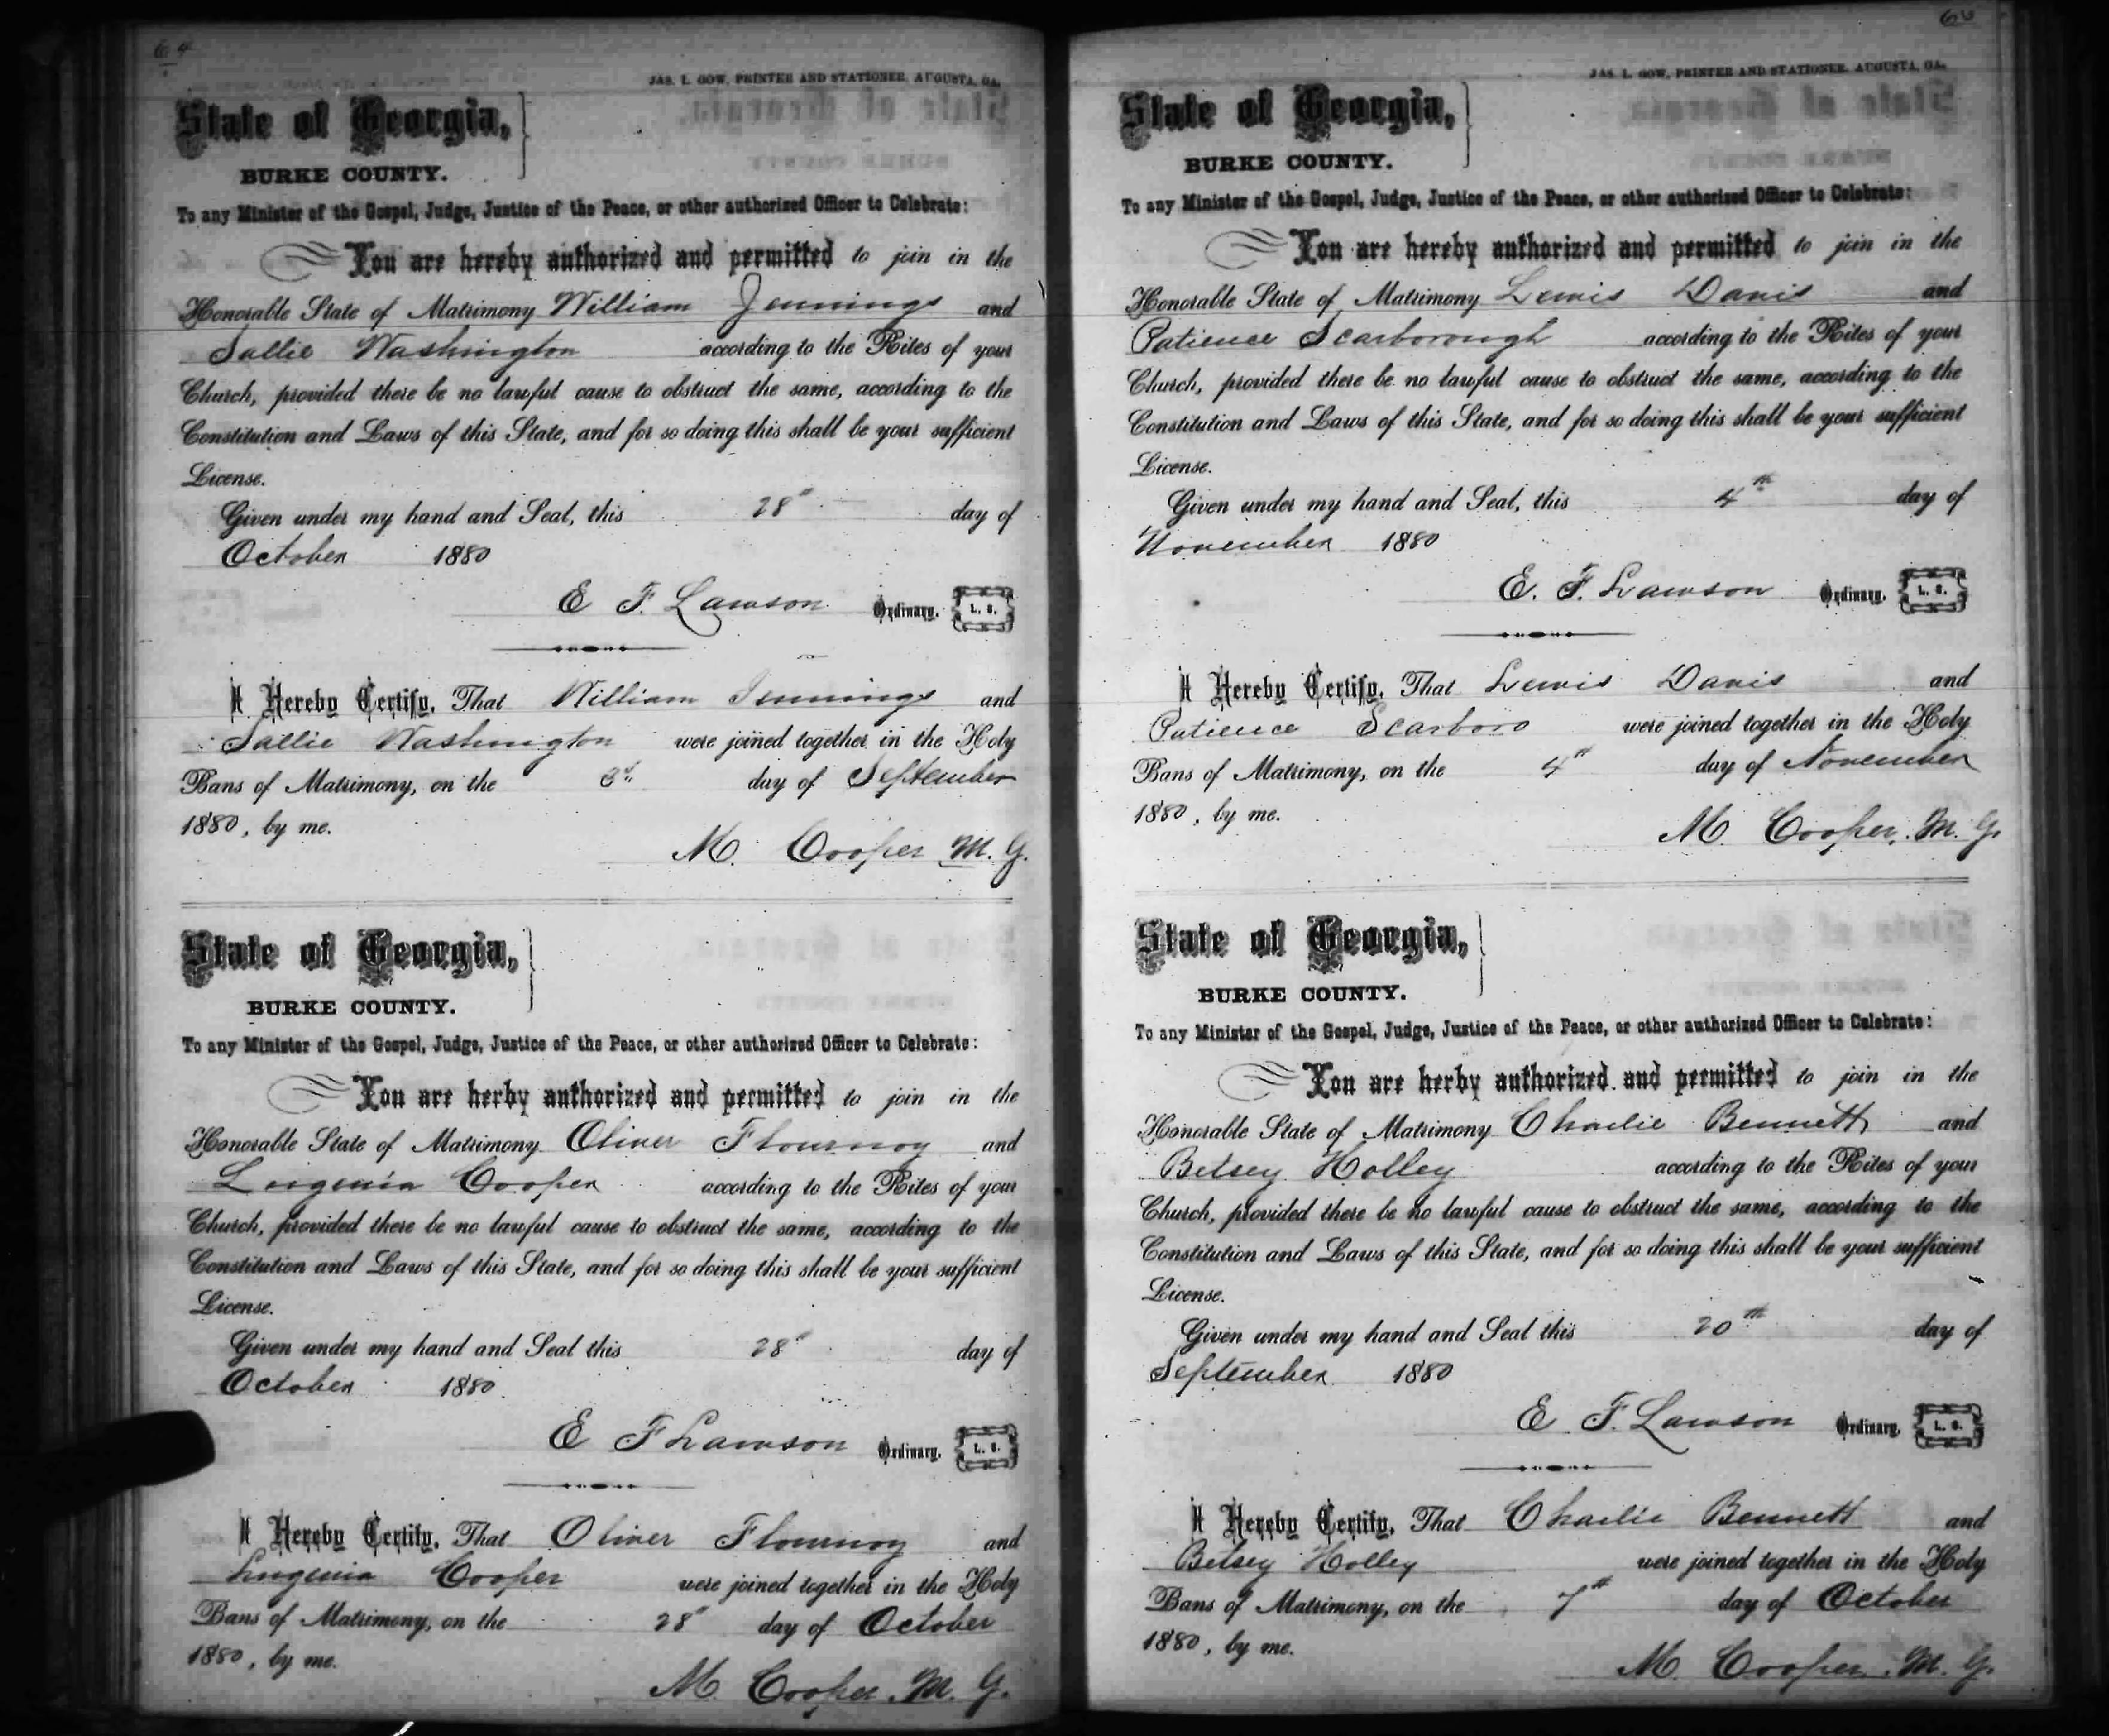 64
JAS. L. GOW, PRINTER AND STATIONER, AUGUSTA, GA.
State of Georgia,
BURKE COUNTY.
To any Minister of the Gospel, Judge, Justice of the Peace, or other authorized Officer to Celebrate:
You are hereby authorized and permitted to join in the
Honorable State of Matrimony William Jennings and
Sallie Washington according to the Rites of your
Church, provided there be no lawful cause to obstruct the same, according to the
Constitution and Laws of this State, and for so doing this shall be your sufficient
License.
Given under my hand and Seal, this 28th day of
October 1880
E F Lawson Ordinary. L. S.
I Hereby Certify, That William Jennings and
Sallie Washington were joined together in the Holy
Bans of Matrimony, on the 3d day of September
1880, by me.
M. Cooper M. G.
State of Georgia,
BURKE COUNTY.
To any Minister of the Gospel, Judge, Justice of the Peace, or other authorized Officer to Celebrate:
You are herby authorized and permitted to join in the
Honorable State of Matrimony Oliver Flournoy and
Lugenia Cooper according to the Rites of your
Church, provided there be no lawful cause to obstruct the same, according to the
Constitution and Laws of this State, and for so doing this shall be your sufficient
License.
Given under my hand and Seal this 28th day of
October 1880
E F Lawson Ordinary. L. S.
I Hereby Certify, That Oliver Flournoy and
Lugenia Cooper were joined together in the Holy
Bans of Matrimony, on the 28th day of October
1880, by me.
M. Cooper, M. G.
JAS. L. GOW, PRINTER AND STATIONER, AUGUSTA, GA.
State of Georgia,
BURKE COUNTY.
To any Minister of the Gospel, Judge, Justice of the Peace, or other authorized Officer to Celebrate:
You are hereby authorized and permitted to join in the
Honorable State of Matrimony Lewis Davis and
Patience Scarborough according to the Rites of your
Church, provided there be no lawful cause to obstruct the same, according to the
Constitution and Laws of this State, and for so doing this shall be your sufficient
License.
Given under my hand and Seal, this 4th day of
November 1880
E. F. Lawson Ordinary. L. S.
I Hereby Certify, That Lewis Davis and
Patience Scarboro were joined together in the Holy
Bans of Matrimony, on the 4th day of November
1880, by me.
M. Cooper, M. G.
State of Georgia,
BURKE COUNTY.
To any Minister of the Gospel, Judge, Justice of the Peace, or other authorized Officer to Celebrate:
You are herby authorized and permitted to join in the
Honorable State of Matrimony Charlie Bennett and
Betsey Holley according to the Rites of your
Church, provided there be no lawful cause to obstruct the same, according to the
Constitution and Laws of this State, and for so doing this shall be your sufficient
License.
Given under my hand and Seal this 20th day of
September 1880
E. F. Lawson Ordinary. L. S.
I Hereby Certify, That Charlie Bennett and
Betsey Holley were joined together in the Holy
Bans of Matrimony, on the 7th day of October
1880, by me.
M. Cooper, M. G.